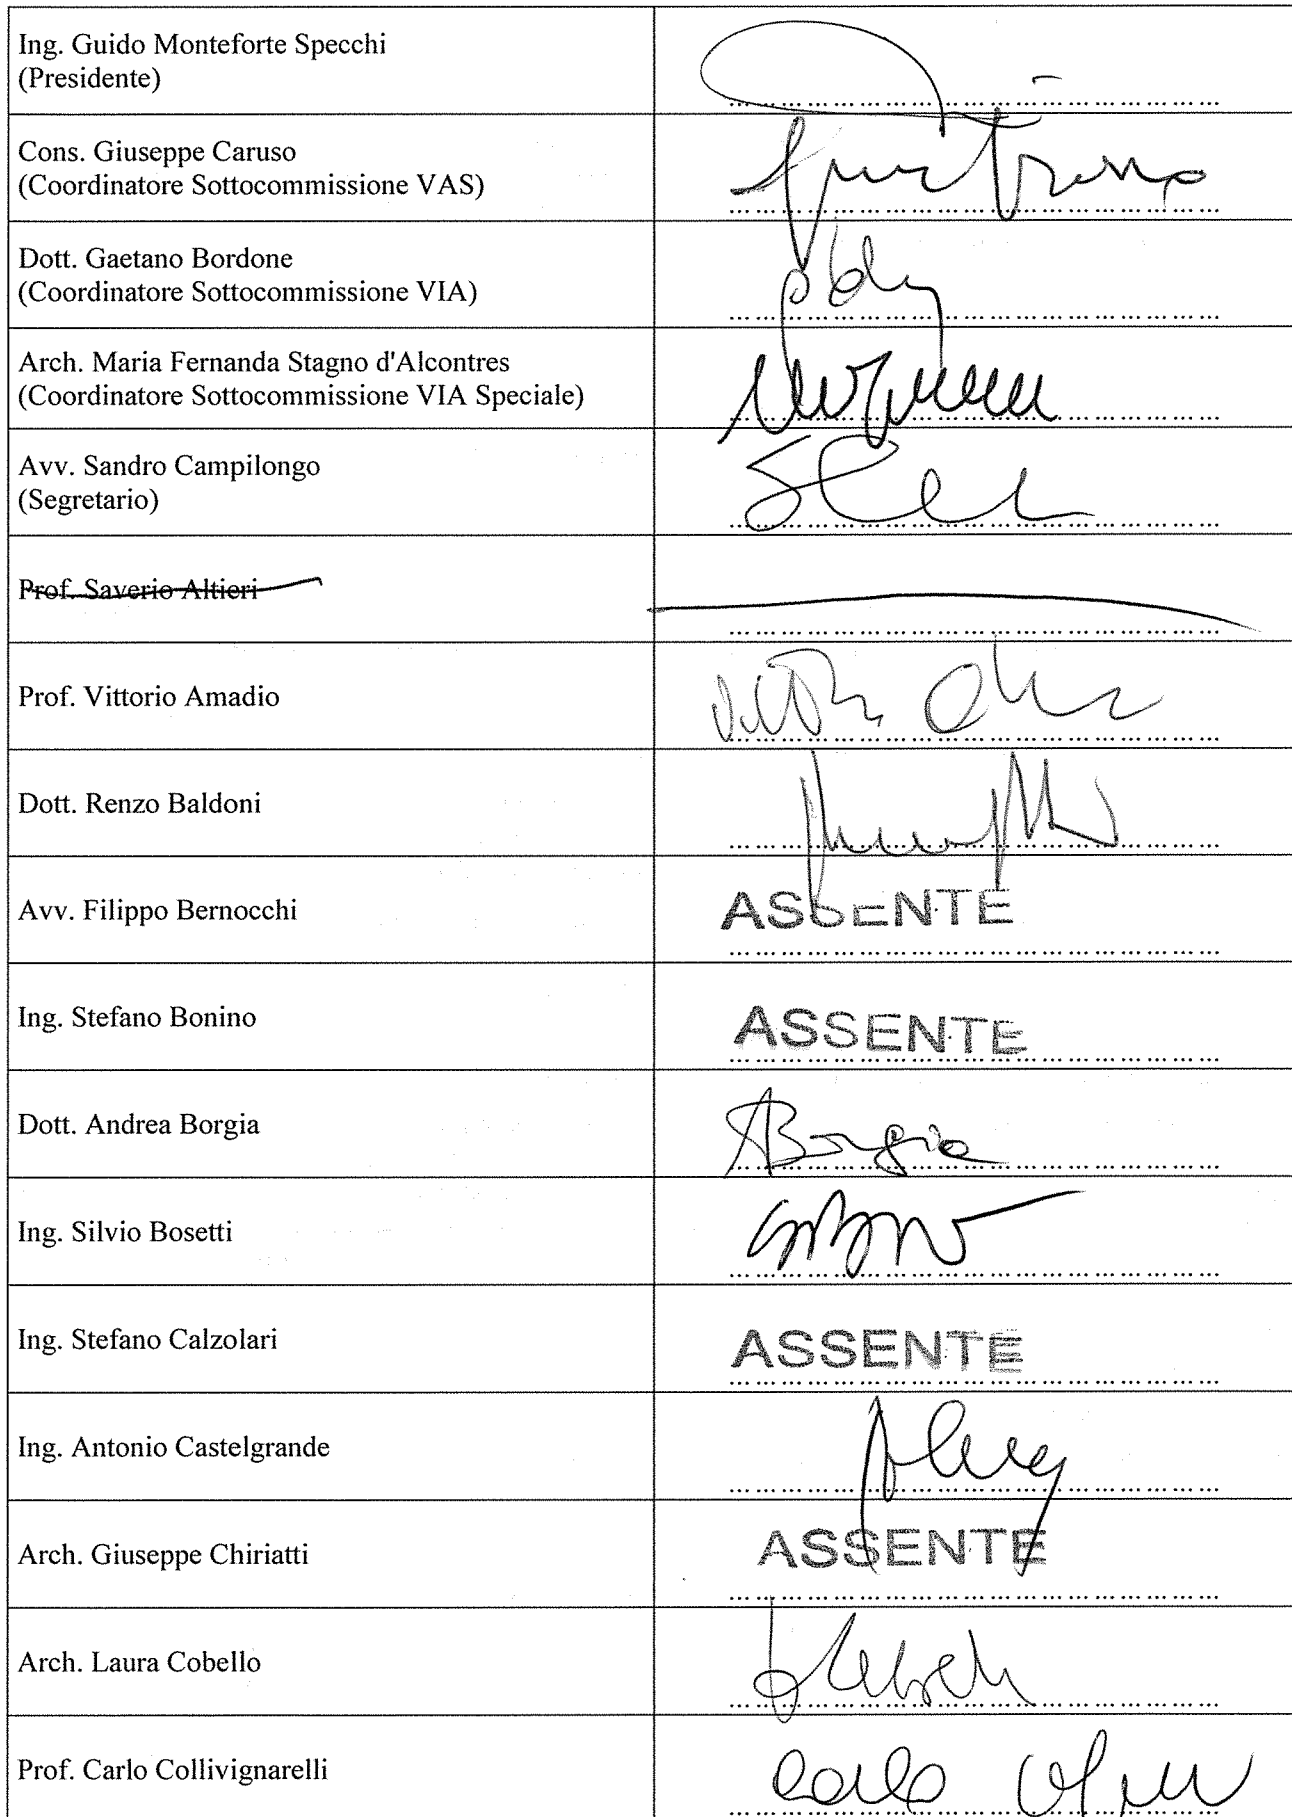 Ing. Guido Monteforte Specchi
(Presidente)
Cons. Giuseppe Caruso
(Coordinatore Sottocommissione VAS)
Dott. Gaetano Bordone
(Coordinatore Sottocommissione VIA)
Arch. Maria Fernanda Stagno d'Alcontres
(Coordinatore Sottocommissione VIA Speciale)
Avv. Sandro Campilongo
(Segretario)
Prof. Saverio Altieri
Prof. Vittorio Amadio
Dott. Renzo Baldoni
Avv. Filippo Bernocchi
ASSENTE
Ing. Stefano Bonino
ASSENTE
Dott. Andrea Borgia
ABorgia
Ing. Silvio Bosetti
Ing. Stefano Calzolari
ASSENTE
Ing. Antonio Castelgrande
Arch. Giuseppe Chiriatti
ASSENTE
Arch. Laura Cobello
Prof. Carlo Collivignarelli
Carlo